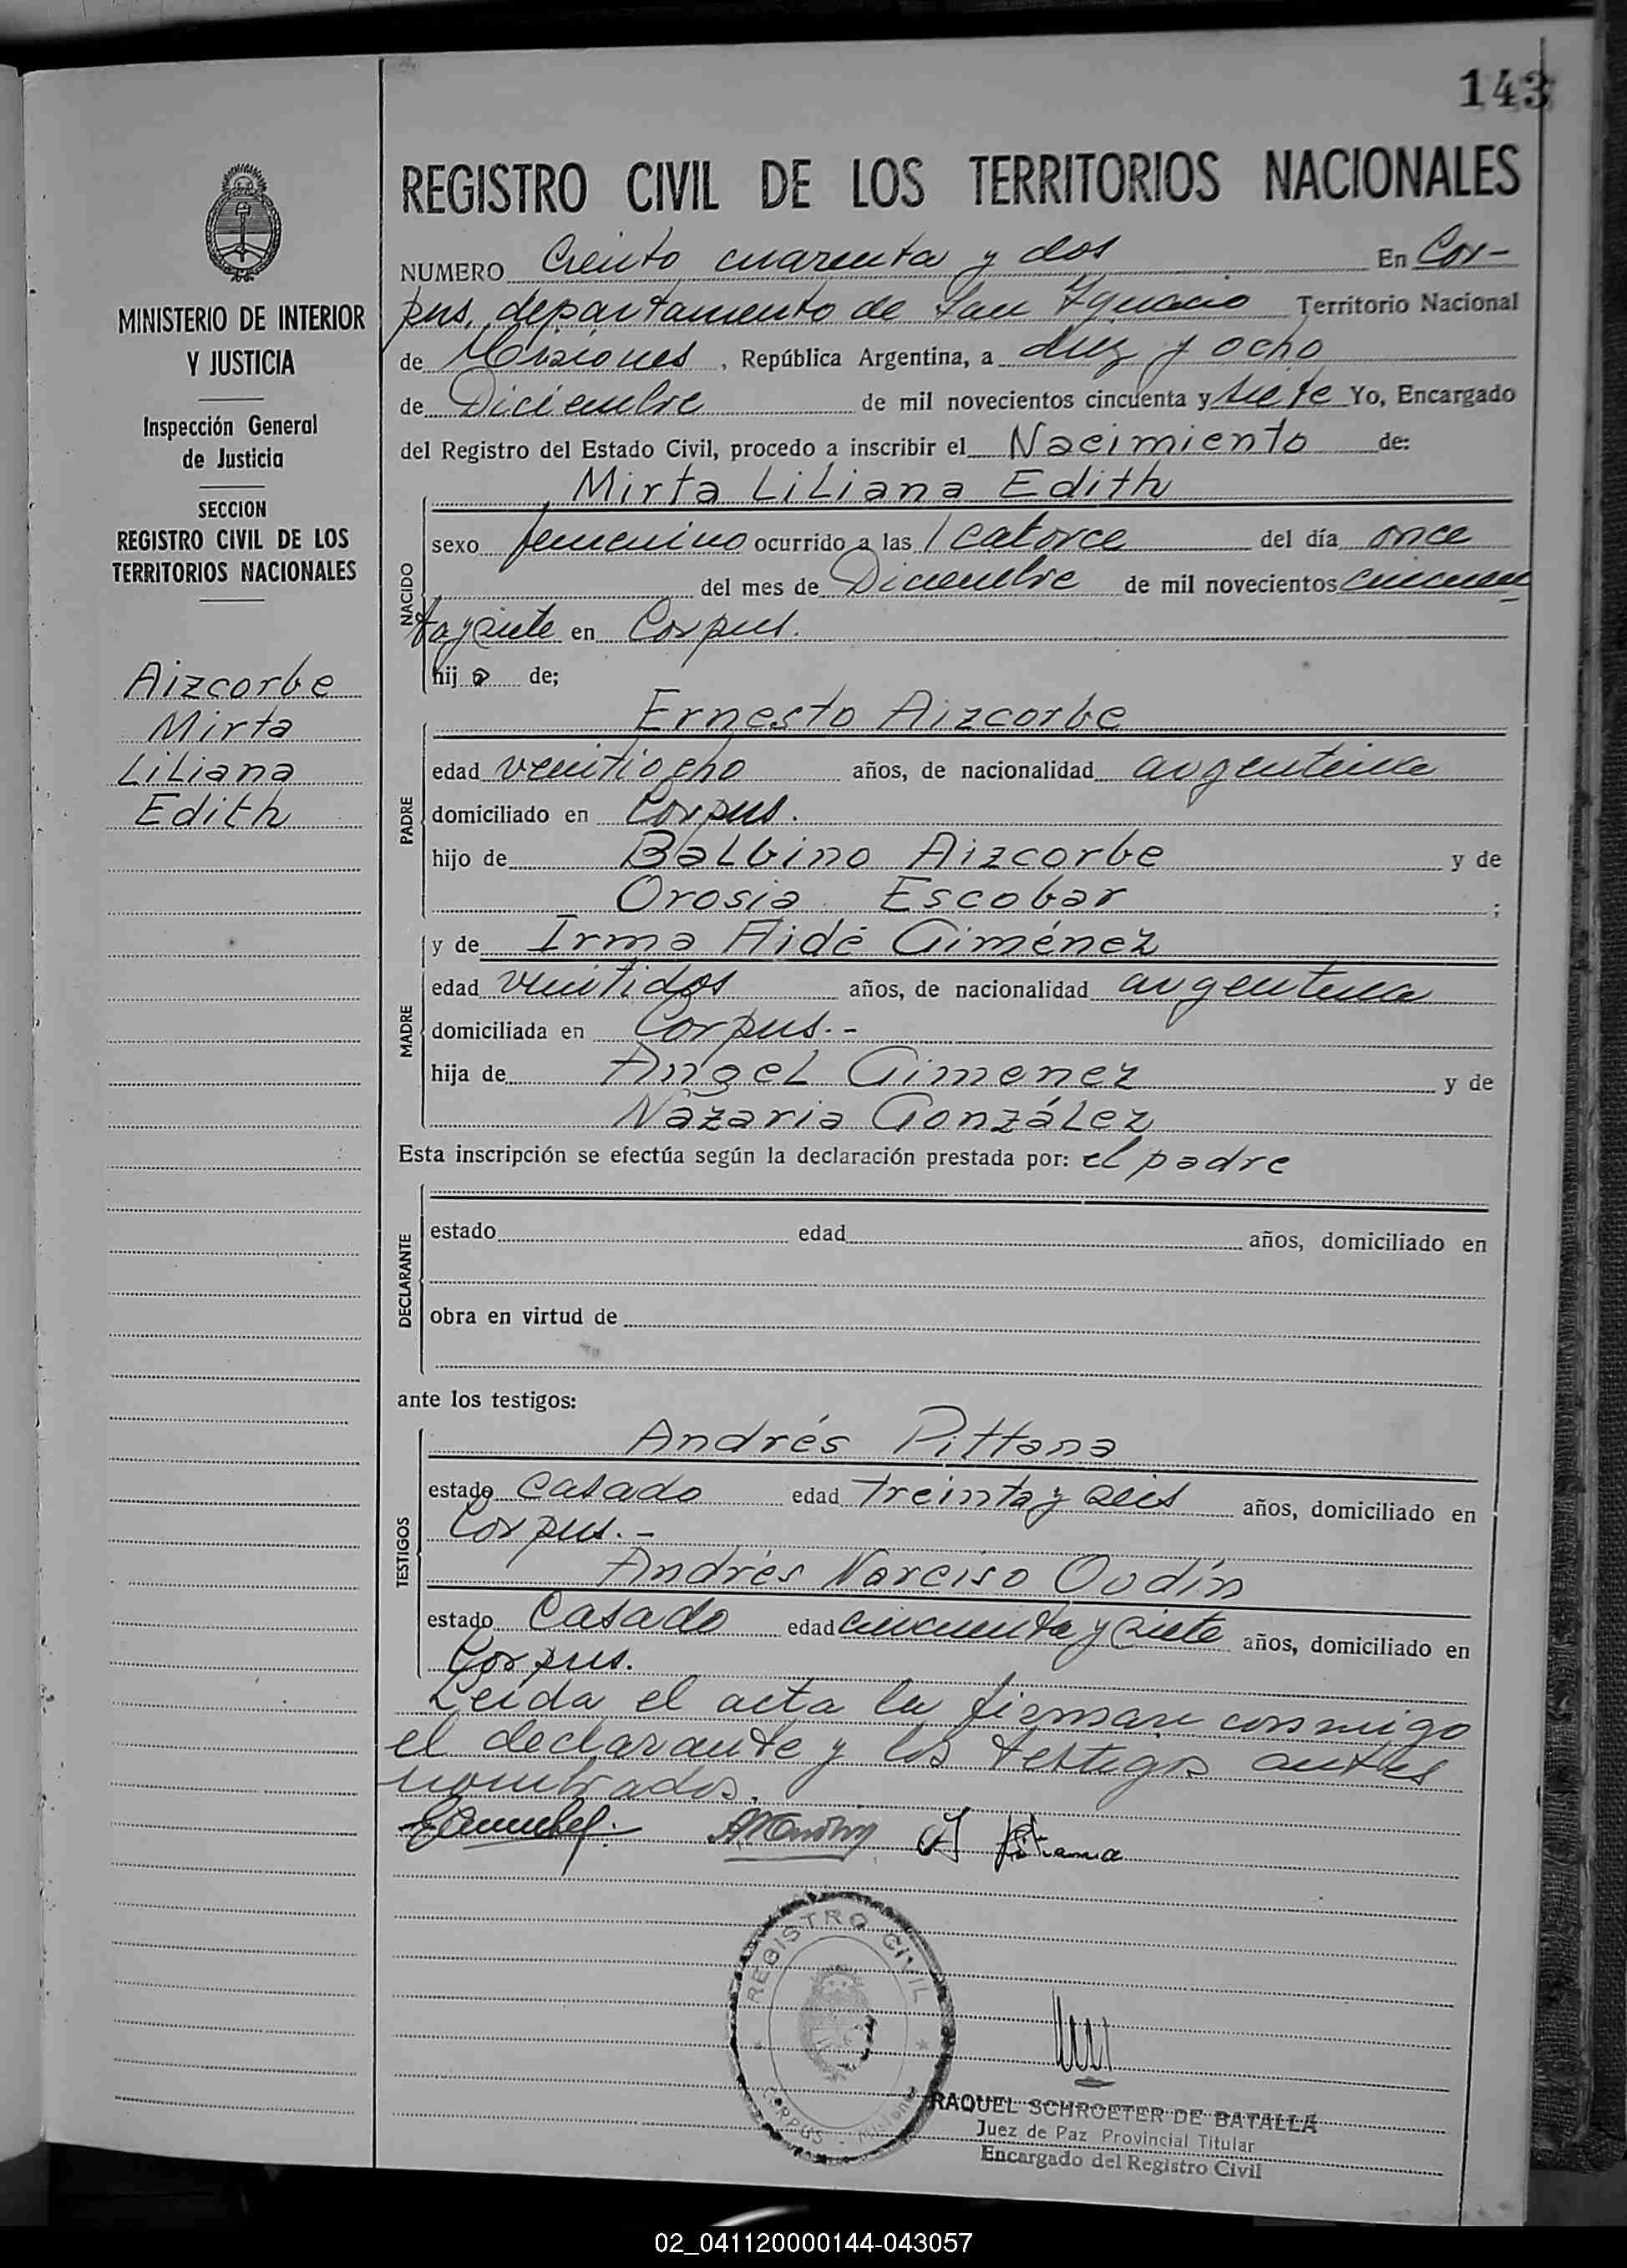 143
REGISTRO CIVIL DE LOS TERRITORIOS NACIONALES
MINISTERIO DE INTERIOR
Y JUSTICIA
Inspección General
de Justicia
SECCION
REGISTRO CIVIL DE LOS
TERRITORIOS NACIONALES
Aizcorbe
Mirta
Liliana
Edith
NUMERO Ciento cuarenta y dos En Cor-
pus, departamento de San Ignacio Territorio Nacional
de Misiones, República Argentina, a diez y ocho
de Diciembre de mil novecientos cincuenta y siete Yo, Encargado
del Registro del Estado Civil, procedo a inscribir el Nacimiento de:
Mirta Liliana Edith
NACIDO
sexo femenino ocurrido a las catorce del día once
del mes de Diciembre de mil novecientos cincuen
ta y siete en Corpus.
hija de;
Ernesto Aizcorbe
PADRE
edad veintiocho años, de nacionalidad argentina
domiciliado en Corpus.
hijo de Balbino Aizcorbe y de
Orosia Escobar ;
y de Irma Aidé Giménez
MADRE
edad veintidos años, de nacionalidad argentina
domiciliada en Corpus.-
hija de Angel Gimenez y de
Nazaria González
Esta inscripción se efectúa según la declaración prestada por: el padre
DECLARANTE
estado edad años, domiciliado en
obra en virtud de
ante los testigos:
Andrés Pittana
TESTIGOS
estado Casado edad treinta y seis años, domiciliado en
Corpus.-
Andrés Narciso Oudín
estado Casado edad cincuenta y siete años, domiciliado en
Corpus.
Leida el acta la firman conmigo
el declarante y los testigos antes
nombrados.
REGISTRO CIVIL
CORPUS - Misiones
RAQUEL SCHROETER DE BATALLA
Juez de Paz Provincial Titular
Encargado del Registro Civil
02_041120000144-043057